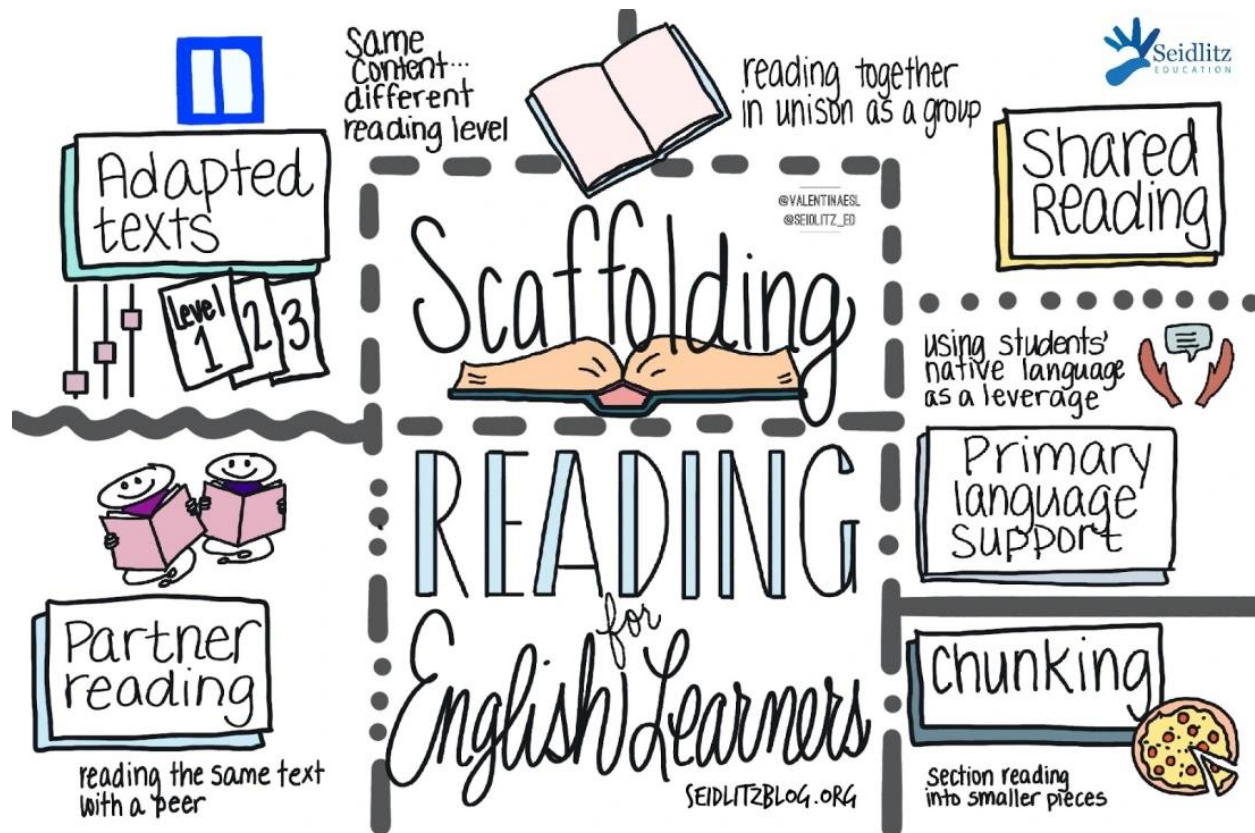 Same
Content...
different
reading level
Adapted
texts
Level
1
2
3
reading together
in unison as a group
Seidlitz
EDUCATION
Shared
Reading
@VALENTINAESL
@SEIDLITZ_ED
Scaffolding
READING
for
English Learners
SEIDLITZBLOG.ORG
using students'
native language
as a leverage
Primary
language
support
Partner
reading
reading the same text
with a peer
chunking
section reading
into smaller pieces